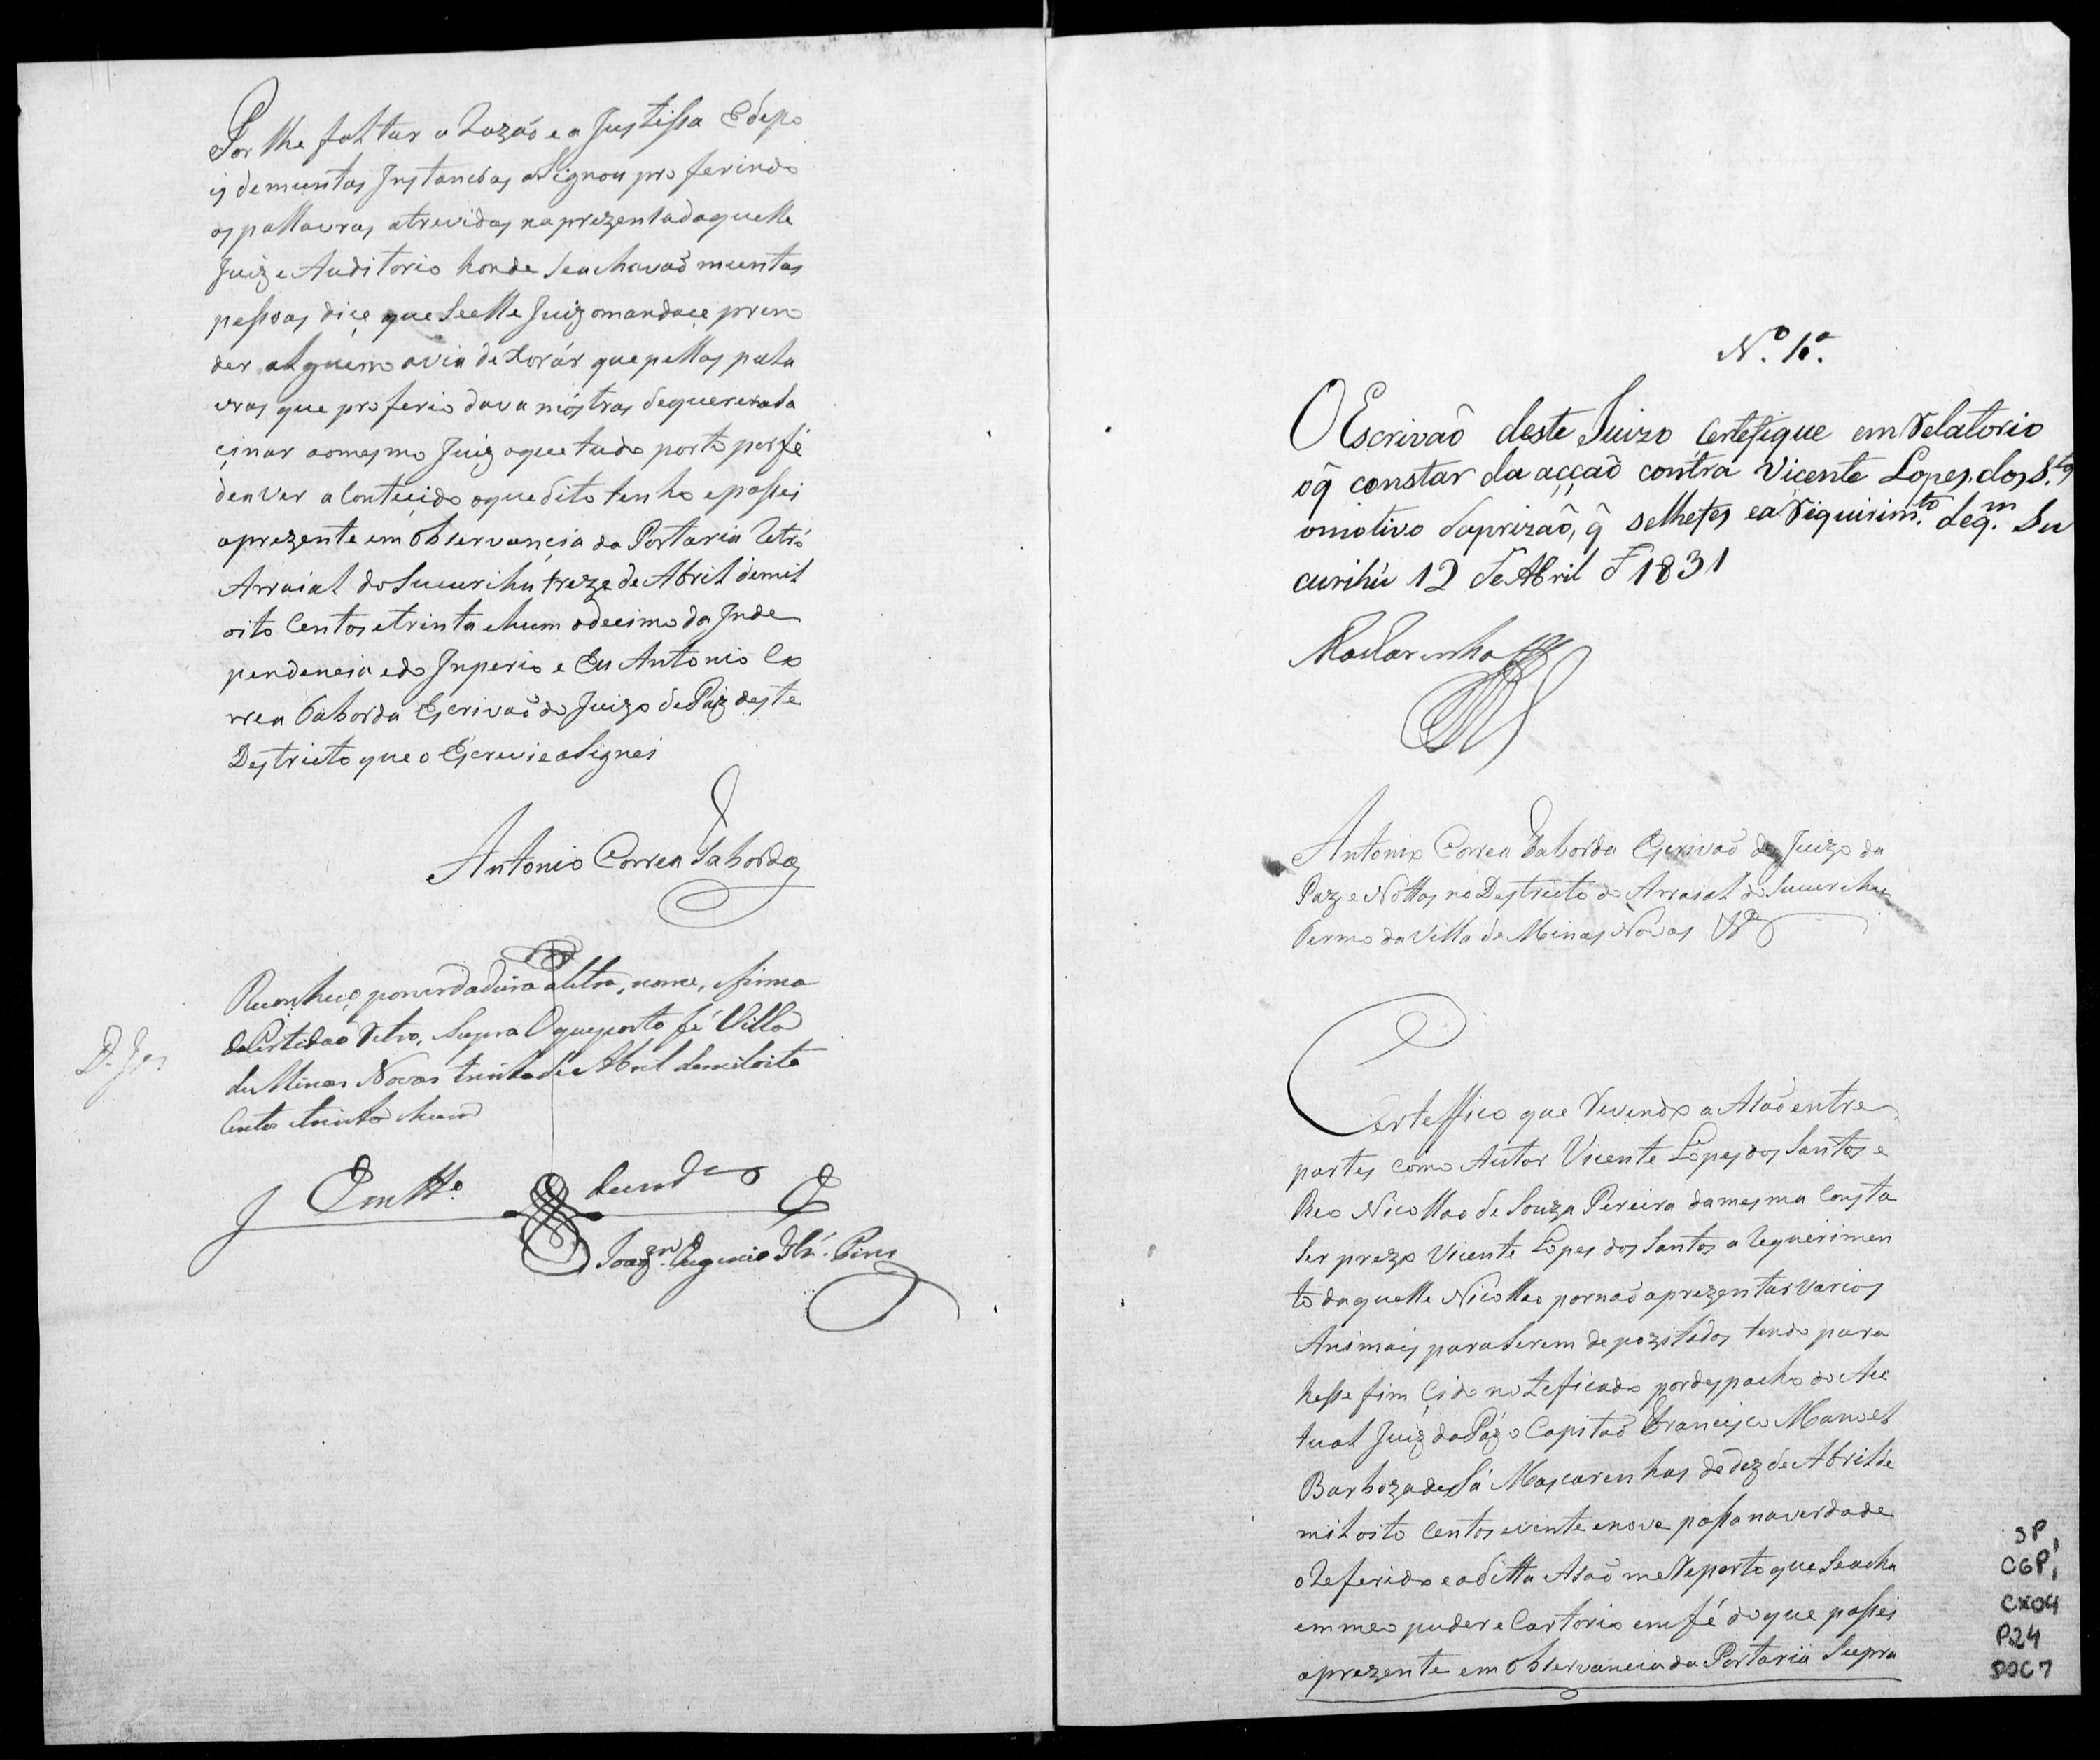 Por lhe faltar a Razaõ e a Justissa E depo
is de muntas Instancias asignou proferindo
as pallavras atrevidas na prezenta daquelle
Juiz e Auditorio honde se achavaõ muntas
pessoas diçe que se elle Juiz mandaçe pren
der alguem avia de xorár que pellas pala
vras que proferio dava móstras de querer asa
çinar ao mesmo Juiz o que tudo porto por fé
de a ver acontecido o que dito tenho e passei
a prezente em Observançia da Portaria Retró
Arraial do Sucurihú treze de Abril de mil
oito Centos e trinta e hum o decimo da Inde
pendencia e do Inperio e Eu Antonio Co
rrea Taborda Escrivaõ do Juizo de Paz deste
Destricto que o Escrevi e asignei
Antonio Correa Taborda
Reconheço por verdadeira a letra, nome, e firma
da Certidaõ Retro, Supra O que porto fé Villa
de Minas Novas trinta de Abril de mil oito
Centos e trinta e hum
Em tto. de verde
Joaqm. Eugenio
Nº. 1º.
O Escrivaõ deste Juizo Certefique em Relatorio
o q̃ constar da acçaõ contra Vicente Lopes dos S.tos
o motivo da prizaõ, q̃ se lhe fes e a Requirim.to de q.m Su
curihú 12 de Abril d 1831
Mascarenhas
Antonio Correa Taborda Escrivaõ do Juizo da
Paz e Nottas no Destricto do Arraial do Sucurihu
Termo da Villa de Minas Novas
Certeffico que Revendo a Asaõ entre
partes como Autor Vicente Lopes dos Santos e
Reo Nicollao de Souza Pereira da mesma Consta
Ser prezo Vicente Lopes dos Santos a Requerimen
to daquelle Nicollao por naõ aprezentar varios
Animais para serem depozitados tendo para
hesse fim Çido noteficado por despacho do Ac
tual Juiz da Páz o Capitaõ Francisco Manoel
Barboza de Sá Mascarenhas de dez de Abril de
mil oito Centos e vinte e nove passa na verdade
o Referido e a ditta Asaõ me Reporto que se acha
em meo puder e Cartorio em fé do que passei
a prezente em Observancia da Portaria Supra
SP,
CGP,
CX04
P24
DOC 7